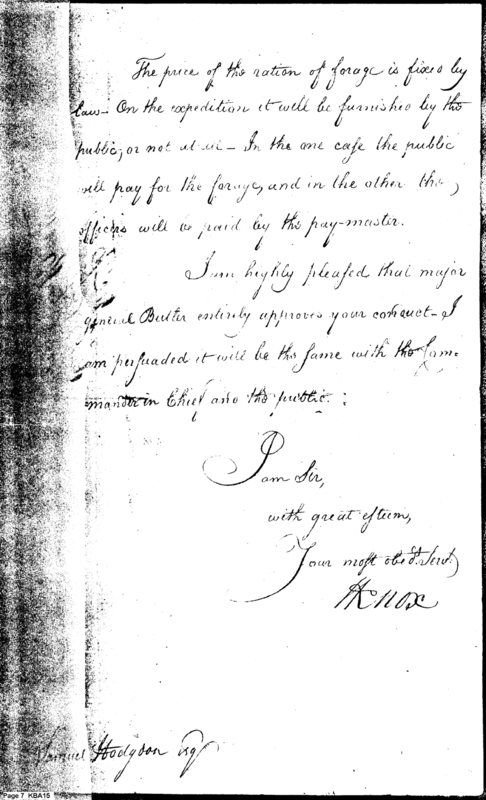 The price of the ration of forage is fixed by
law— On the expedition it will be furnished by the
public, or not at all— In the one case the public
will pay for the forage, and in the other the,
officers will be paid by the pay-master.
I am highly pleased that major
general Butler entirely approves your conduct— I
am persuaded it will be the same with the Com-
mander in Chief and the public.
I am Sir,
with great esteem,
Your most obedt. Servt.
HKnox
Samuel Hodgdon Esqr
Page 7 KBA15